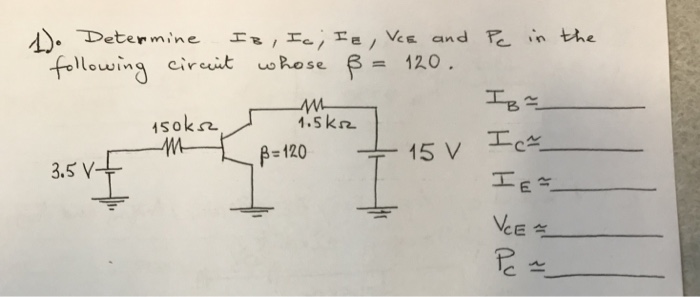 1). Determine IB, IC; IE, VCE and PC in the
following circuit whose β = 120.
IB ≈
1.5kΩ
150kΩ
IC ≈
β=120
15 V
3.5 V
IE ≈
VCE ≈
PC ≈